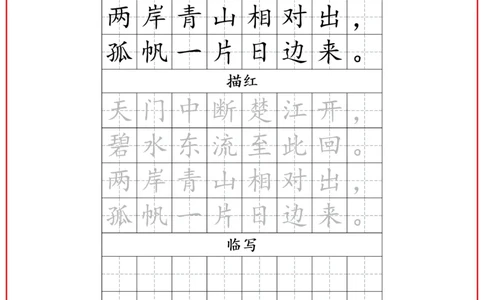 两岸青山相对出，
孤帆一片日边来。
描红
天门中断楚江开，
碧水东流至此回。
两岸青山相对出，
孤帆一片日边来。
临写